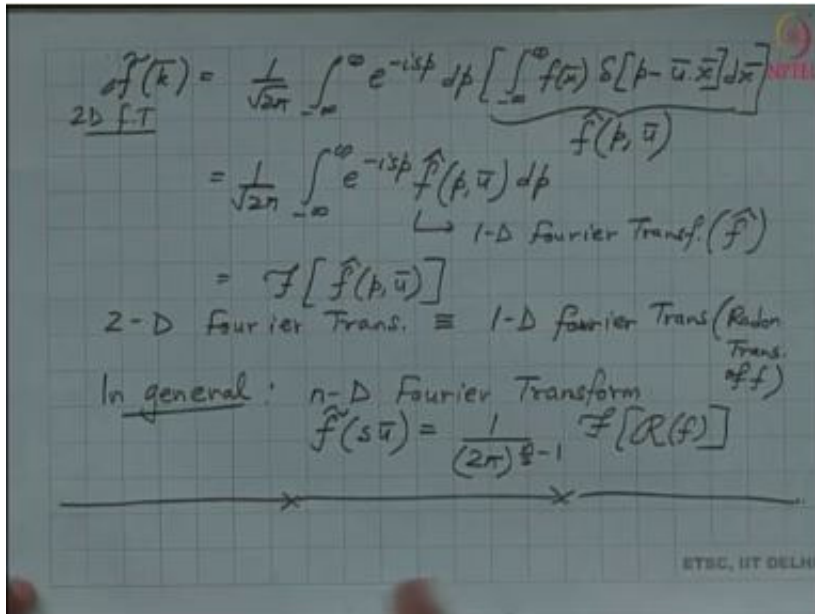 f̃(k̄) = 1/√2π ∫_{-∞}^{∞} e^{-isp} dp [∫_{-∞}^{∞} f(x̄) δ[p - ū·x̄] dx̄]
NPTEL
2D f.T
f̂(p, ū)
= 1/√2π ∫_{-∞}^{∞} e^{-isp} f̂(p, ū) dp
↳ 1-D Fourier Transf. (f̂)
= ℱ[f̂(p, ū)]
2-D Fourier Trans. ≡ 1-D fourier Trans (Radon Trans. of f)
In general: n-D Fourier Transform
f̃(sū) = 1/(2π)^{n/2 - 1} ℱ[ℛ(f)]
ETSC, IIT DELHI